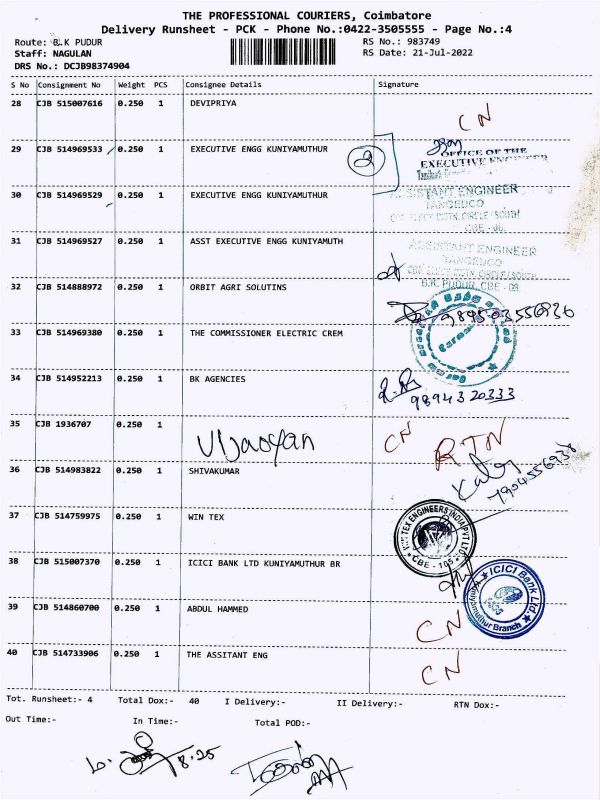 THE PROFESSIONAL COURIERS, Coimbatore
Delivery Runsheet - PCK - Phone No.:0422-3505555 - Page No.:4
Route: B.K PUDUR
RS No.: 983749
Staff: NAGULAN
RS Date: 21-Jul-2022
DRS No.: DCJB98374904
S No Consignment No Weight PCS Consignee Details Signature
28 CJB 515007616 0.250 1 DEVIPRIYA
CN
29 CJB 514969533 0.250 1 EXECUTIVE ENGG KUNIYAMUTHUR
2
OFFICE OF THE
EXECUTIVE ENGINEER
30 CJB 514969529 0.250 1 EXECUTIVE ENGG KUNIYAMUTHUR
ASSISTANT ENGINEER
TANGEDCO
31 CJB 514969527 0.250 1 ASST EXECUTIVE ENGG KUNIYAMUTH
ASSISTANT ENGINEER
TANGEDCO
CBE ELECY DISTN. CIRCLE/SOUTH
B.K. PUDUR, CBE - 08.
32 CJB 514888972 0.250 1 ORBIT AGRI SOLUTINS
33 CJB 514969380 0.250 1 THE COMMISSIONER ELECTRIC CREM
34 CJB 514952213 0.250 1 BK AGENCIES
9894320333
35 CJB 1936707 0.250 1
Vijaayan
CN RTN
36 CJB 514983822 0.250 1 SHIVAKUMAR
37 CJB 514759975 0.250 1 WIN TEX
WIN TEX ENGINEERS INDIA PVT LTD.
CBE - 105
38 CJB 515007370 0.250 1 ICICI BANK LTD KUNIYAMUTHUR BR
ICICI Bank Ltd.
Kuniyamuthur Branch
39 CJB 514860700 0.250 1 ABDUL HAMMED
CN
40 CJB 514733906 0.250 1 THE ASSITANT ENG
CN
Tot. Runsheet:- 4 Total Dox:- 40 I Delivery:- II Delivery:- RTN Dox:-
Out Time:- In Time:- Total POD:-
8.25